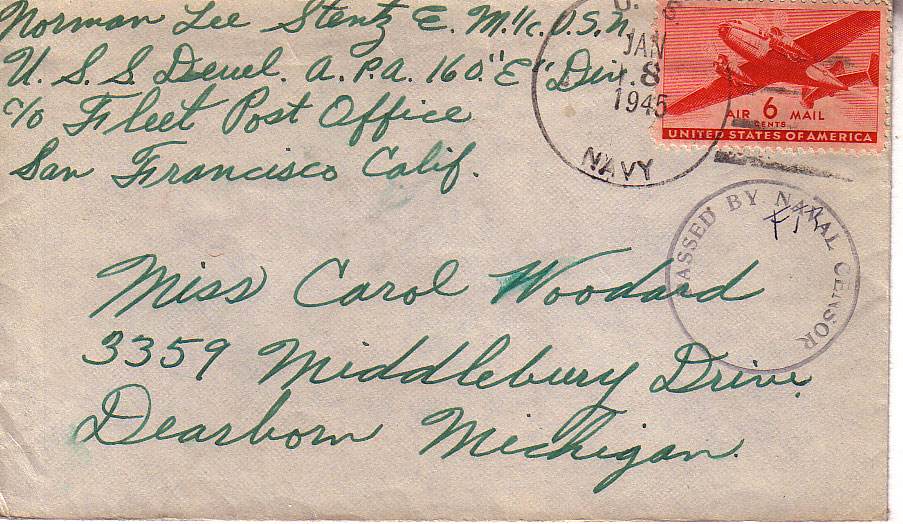 Norman Lee Stentz E. M. 1/c. U.S.N.
U. S. S. Deuel. A. P.A. 160. "E" Div.
c/o Fleet Post Office
San Francisco Calif.
U. S.
JAN
8
1945
NAVY
AIR 6 MAIL
CENTS
UNITED STATES OF AMERICA
PASSED BY NAVAL CENSOR
Miss Carol Woodard
3359 Middlebury Drive
Dearborn Michigan.